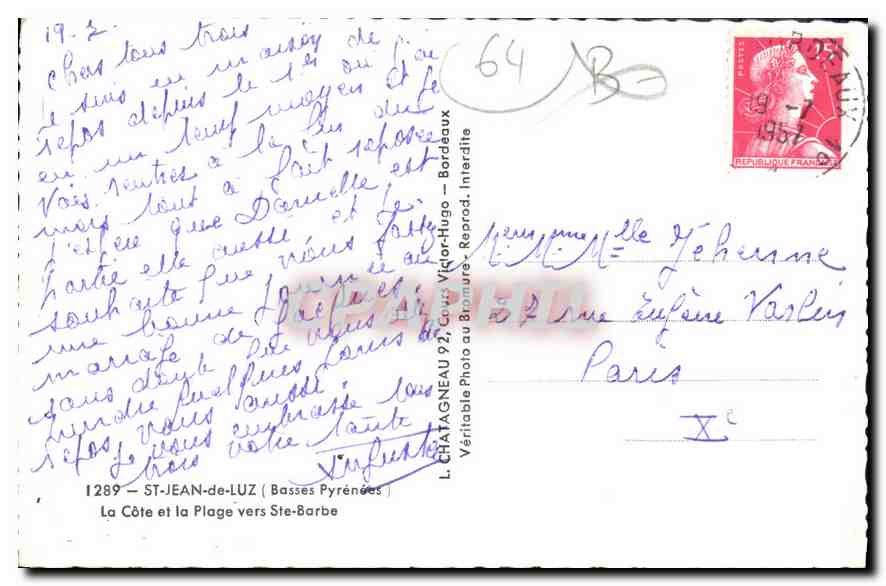 19.7.
Chers tous trois
Je suis en maison de
repos depuis le 1er ou j'ai
eu un temps moyen et je
vais rentrer à la fin du
mois tout à fait reposée
J'espère que Danielle est
partie elle aussi et je
souhaite que vous fassiez
une bonne journée au
mariage de Jacques.
sans doute que vous allez
prendre quelques jours de
repos vous aussi.
Je vous embrasse tous
trois votre tante
Augusta
1289 — ST-JEAN-de-LUZ ( Basses Pyrénées )
La Côte et la Plage vers Ste-Barbe
L. CHATAGNEAU 92, Cours Victor-Hugo — Bordeaux
Véritable Photo au Bromure - Reprod. Interdite
CPAPHIL
64
B
POSTES
REPUBLIQUE FRANÇAISE
19 - 7
1957
Mlle Jehenne
27 rue Eugène Varlin
Paris
Xe